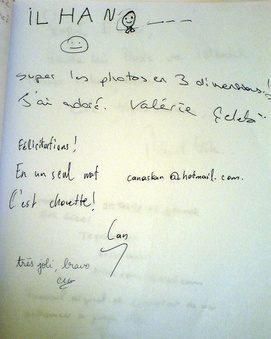 iLHAN
super les photos en 3 dimensions!!
J'ai adoré. Valérie
Félicitations!
En un seul mot canaskan@hotmail.com.
C'est chouette!
Can
très joli, bravo